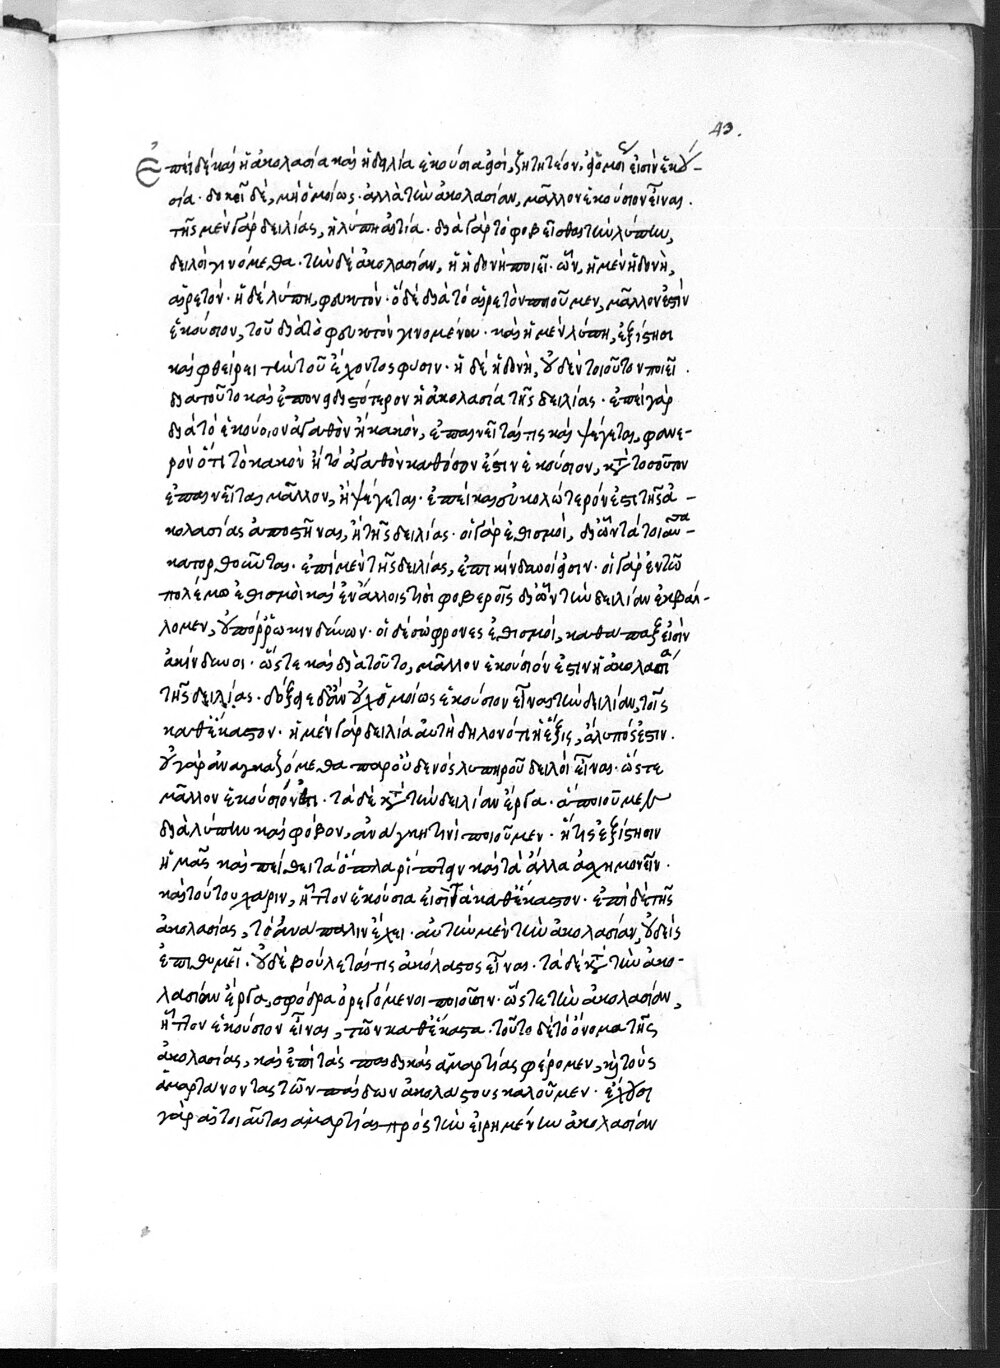 43.
Ἐπεὶ δὲ καὶ ἡ ἀκολασία καὶ ἡ δειλία ἑκούσιαί εἰσι, ζητητέον, εἰ ὁμοίως εἰσὶν ἑκού-
σια· δοκεῖ δὲ, μὴ ὁμοίως· ἀλλὰ τὴν ἀκολασίαν, μᾶλλον ἑκούσιον εἶναι.
τῆς μὲν γὰρ δειλίας, ἡ λύπη αἰτία· διὰ γὰρ τὸ φοβεῖσθαι τὴν λύπην,
δειλοὶ γινόμεθα· τὴν δὲ ἀκολασίαν, ἡ ἡδονὴ ποιεῖ· ὧν, ἡ μὲν ἡδονὴ,
αἱρετόν· ἡ δὲ λύπη, φευκτόν· ὃ δὲ διὰ τὸ αἱρετὸν ποιοῦμεν, μᾶλλον ἐστὶν
ἑκούσιον, τοῦ διὰ τὸ φευκτὸν γινομένου· καὶ ἡ μὲν λύπη, ἐξίστησι
καὶ φθείρει τὴν τοῦ ἔχοντος φύσιν· ἡ δὲ ἡδονὴ, οὐδὲν τοιοῦτον ποιεῖ.
διατοῦτο καὶ ἐπονειδιστότερον ἡ ἀκολασία τῆς δειλίας· ἐπεὶ γὰρ
διὰ τὸ ἑκούσιον ἀγαθὸν ἢ κακὸν, ἐπαινεῖταί τις καὶ ψέγεται, φανε-
ρὸν ὅτι τὸ κακὸν ἢ τὸ ἀγαθὸν καθόσον ἐστὶν ἑκούσιον, κατὰ τοσοῦτον
ἐπαινεῖται μᾶλλον, ἢ ψέγεται· ἐπεὶ καὶ εὐκολώτερόν ἐστι τῆς ἀ-
κολασίας ἀποστῆναι, ἢ τῆς δειλίας· οἱ γὰρ ἐθισμοὶ, δι' ὧν τὰ τοιαῦτα
κατορθοῦται· ἐπὶ μὲν τῆς δειλίας, ἐπικίνδυνοί εἰσιν· οἱ γὰρ ἐν τῷ
πολέμῳ ἐθισμοὶ καὶ ἐν ἄλλοις τισὶ φοβεροῖς δι' ὧν τὴν δειλίαν ἐκβάλ-
λομεν, οὐ πόρρω κινδύνων· οἱ δὲ σώφρονες ἐθισμοὶ, καθάπαξ εἰσὶν
ἀκίνδυνοι· ὥστε καὶ διὰ τοῦτο, μᾶλλον ἑκούσιόν ἐστιν ἡ ἀκολασία
τῆς δειλίας· δόξειε δ' ἂν οὐχ ὁμοίως ἑκούσιον εἶναι τὴν δειλίαν, τοῖς
καθέκαστον· ἡ μὲν γὰρ δειλία αὐτὴ δηλονότι ἡ ἕξις, ἄλυπός ἐστιν.
οὐ γὰρ ἀναγκαζόμεθα παρ' οὐδενὸς λυπηροῦ δειλοὶ εἶναι· ὥστε
μᾶλλον ἑκούσιόν ἐστι· τὰ δὲ κατὰ τὴν δειλίαν ἔργα· ἃ ποιοῦμεν
διὰ λύπην καὶ φόβον, ἀνάγκῃ τινὶ ποιοῦμεν· ἥτις ἐξίστησιν
ἡμᾶς καὶ πείθει τὰ ὅπλα ῥίπτειν καὶ τὰ ἄλλα ἀσχημονεῖν.
καὶ τούτου χάριν, ἧττον ἑκούσιά εἰσι τὰ καθέκαστον· ἐπὶ δὲ τῆς
ἀκολασίας, τὸ ἀνάπαλιν ἔχει· αὐτὴν μὲν τὴν ἀκολασίαν, οὐδεὶς
ἐπιθυμεῖ· οὐδὲ βούλεταί τις ἀκόλαστος εἶναι· τὰ δὲ κατὰ τὴν ἀκο-
λασίαν ἔργα, σφόδρα ὀρεγόμενοι ποιοῦσιν· ὥστε τὴν ἀκολασίαν,
ἧττον ἑκούσιον εἶναι, τῶν καθέκαστα· τοῦτο δὲ τὸ ὄνομα τῆς
ἀκολασίας, καὶ ἐπὶ τὰς παιδικὰς ἁμαρτίας φέρομεν, καὶ τοὺς
ἁμαρτάνοντας τῶν παίδων ἀκολάστους καλοῦμεν· ἔχουσι
γὰρ αἱ τοιαῦται ἁμαρτίαι πρὸς τὴν εἰρημένην ἀκολασίαν